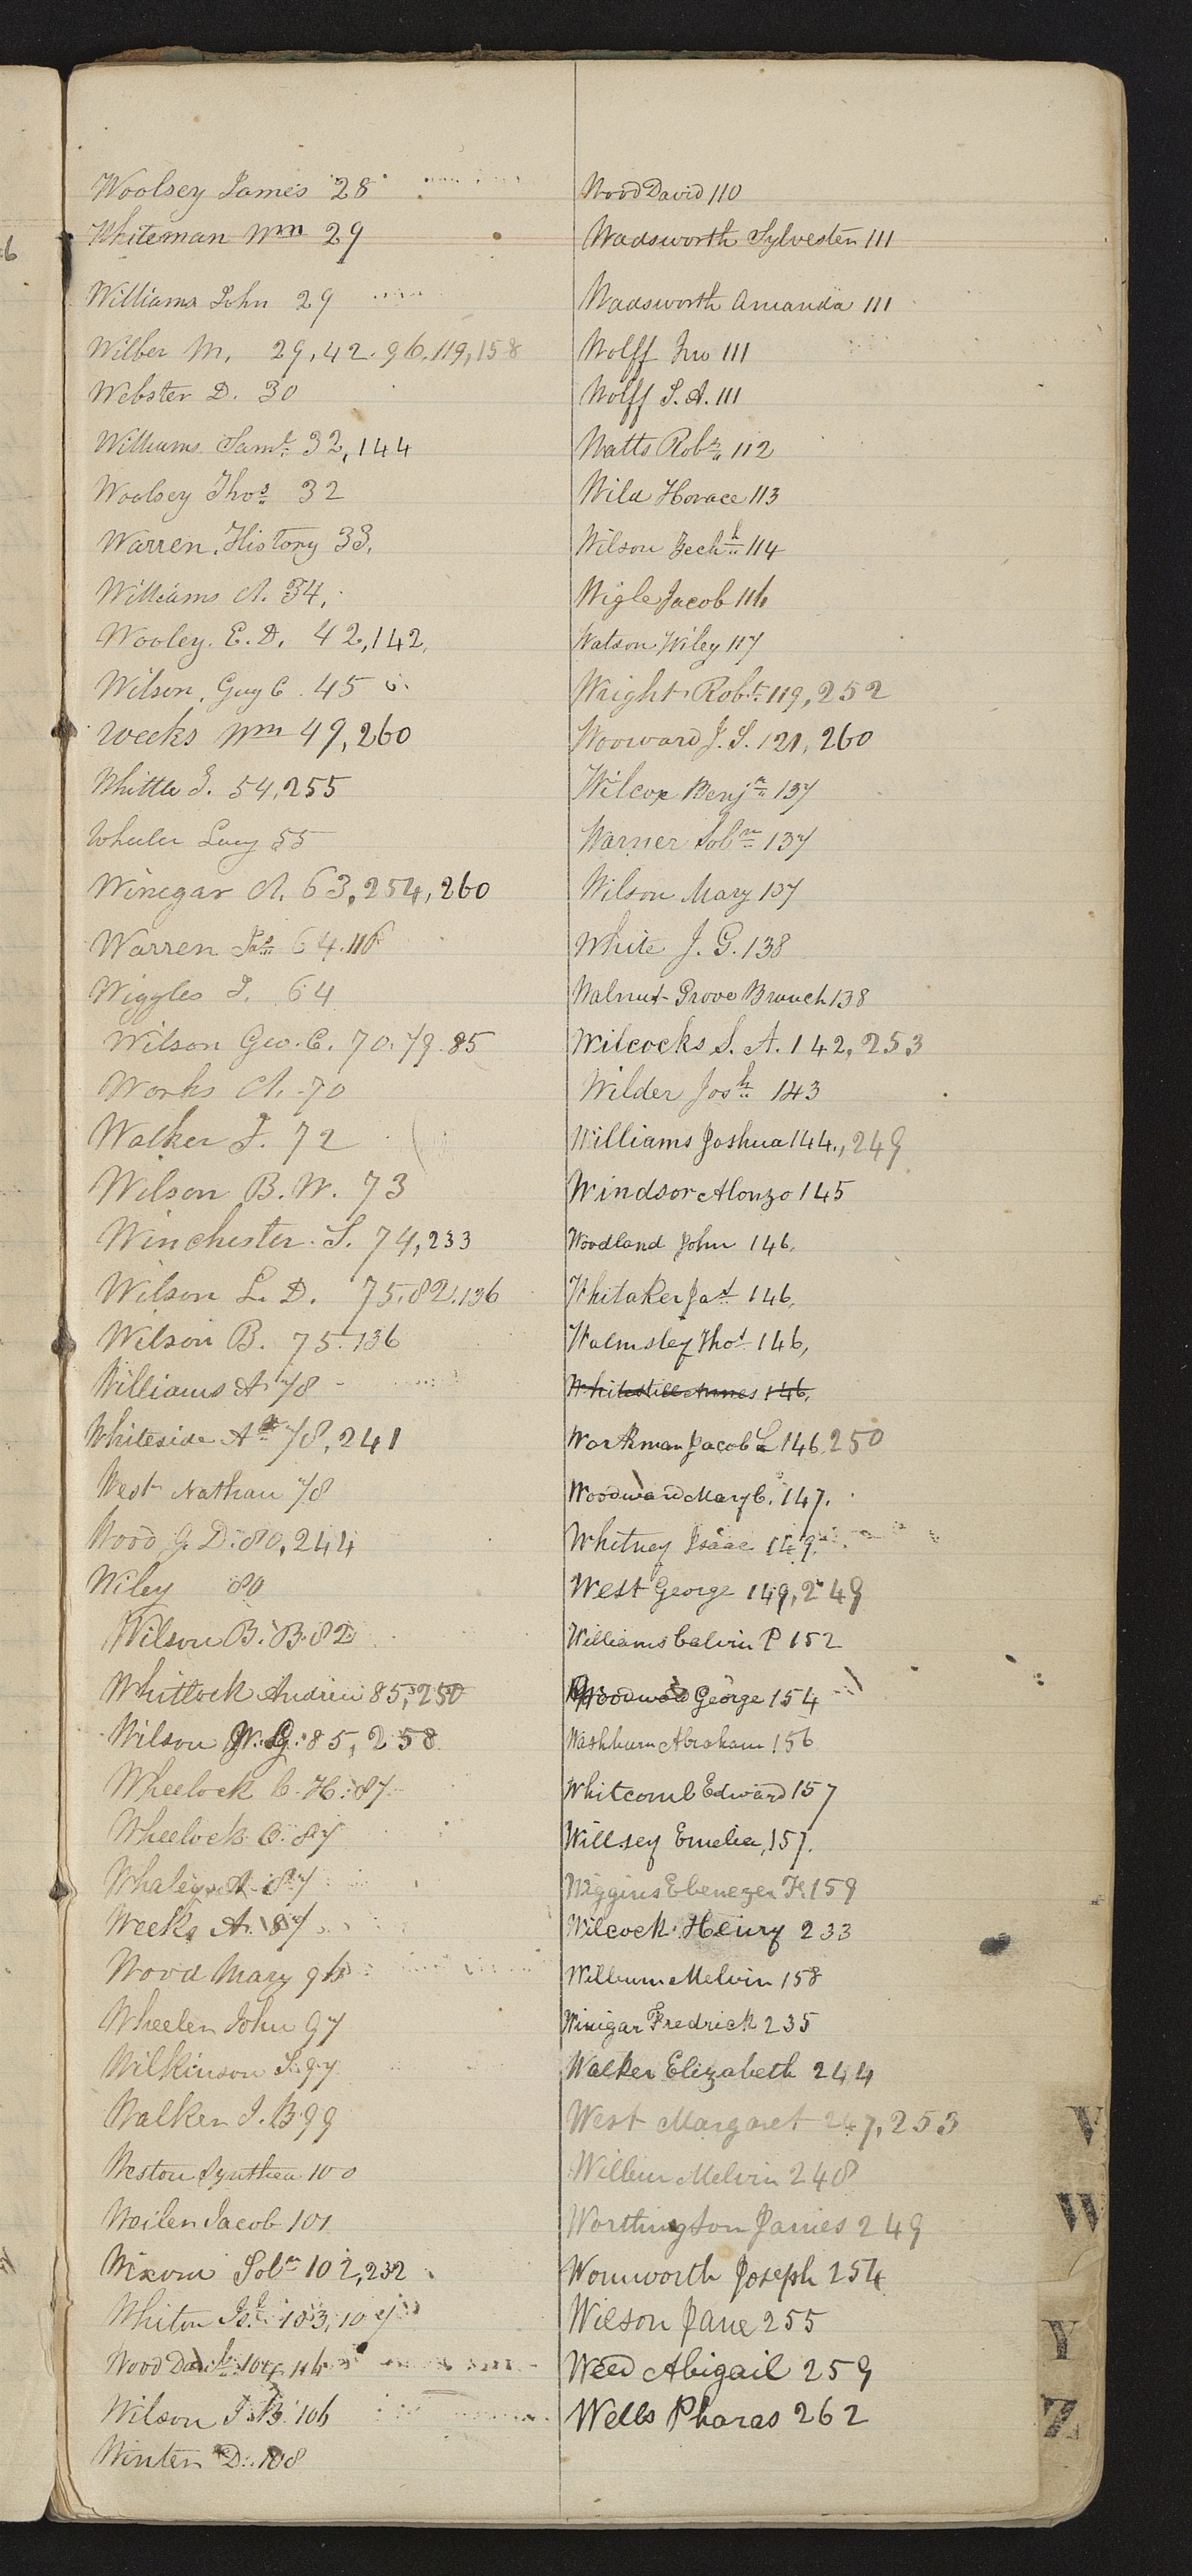 Woolsey James 28
Whiteman Wm 29
Williams John 29
Wilber M, 29, 42. 96, 119, 158
Webster D. 30
Williams Saml 32, 144
Woolsey Thos 32
Warren, History 33,
Williams A. 34,
Wooley. E. D. 42, 142,
Wilson, Guy C. 45
Weeks Wm 49, 260
Whittle J. 54, 255
Wheeler Lucy 55
Winegar A. 63, 254, 260
Warren Jas 64. 116
Wiggles J. 64
Wilson Geo. C. 70. 79. 85
Works A. 70
Walker J. 72
Wilson B. W. 73
Winchester. S. 74, 233
Wilson L. D. 75. 82. 136
Wilson B. 75. 136
Williams A 78
Whiteside A 78, 241
West Nathan 78
Wood G. D. 80, 244
Wiley 80
Wilson B. B. 82
Whitlock Andrew 85, 250
Wilson W. G. 85, 258
Wheelock C. H. 87
Wheelock C. 87
Whaley A. 87
Weeks A. 87
Wood Mary 96
Wheeler John 97
Wilkinson S. 97
Walker J. B 99
Weston Synthea 100
Weiler Jacob 101
Wixom Soln 102, 232
Whiton 103, 107
Wood 104, 116
Wilson J. B. 106
Winter D. 108
Wood David 110
Wadsworth Sylvester 111
Wadsworth Amanda 111
Wolff Jno 111
Wolff S. A. 111
Watts Robt 112
Wild Horace 113
Wilson Zechh 114
Wigle Jacob 116
Watson Wiley 117
Wright Robt 119, 252
Wooward J. S. 121, 260
Wilcox Benjn 137
Warner Soln 137
Wilson Mary 137
White J. G. 138
Walnut Grove Branch 138
Wilcocks S. A. 142, 253
Wilder Josh 143
Williams Joshua 144, 249
Windsor Alonzo 145
Woodland John 146,
Whitaker Jas 146,
Walmsley Thos 146,
146,
Workman Jacob L 146, 250
Woodward Mary C. 147.
Whitney Isaac 149.
West George 149, 249
Williams Calvin P 152
George 154
Washburn Abraham 156
Whitcomb Edward 157
Willsey Emelia, 157.
Wiggins Ebenezer F. 159
Wilcock Henry 233
Wilburn Melvin 158
Winigar Fredrick 235
Walker Elizabeth 244
West Margaret 247, 253
Wilbur Melvin 248
Worthington James 249
Wornworth Joseph 254
Wilson Jane 255
Weed Abigail 259
Wells Pharas 262
V
W
Y
Z